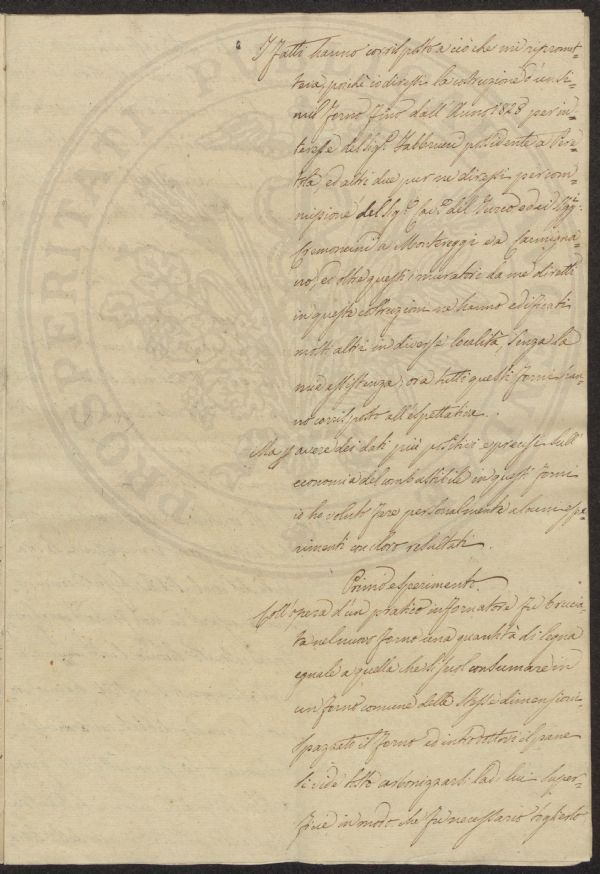 I fatti hanno corrisposto a ciò che mi ripromet=
teva, poiché io diressi la costruzione d'un si=
mil forno fino dall'Anno 1828 per in=
teresse del Sigr. Fabbrucci possidente a Pere=
tola, ed altri due pur ne diressi per com=
missione del Sigr. Cav. del Turco ed ai Sigri.
Cremoncini a Montereggi e a Carmigna=
no; ed oltre questi i muratori da me diretti
in queste costruzioni ne hanno edificati
molti altri in diverse località, senza la
mia assistenza; ora tutti questi forni han=
no corrisposto all'espettativa.
Ma p avere dei dati più positivi e precisi sull'
economia del combustibile in questi forni
io ho voluto fare personalmente alcuni espe=
rimenti con loro resultati.
Primo esperimento.
Coll'opera d'un pratico infornatore fu brucia=
ta nel nuovo forno una quantità di legna
eguale a quella che si suol consumare in
un forno comune delle stesse dimensioni.
Spazzato il forno ed introdottovi il pane
si vide tosto carbonizzarsi la di lui super=
ficie in modo che fu necessario toglierlo
PROSPERITATI PU